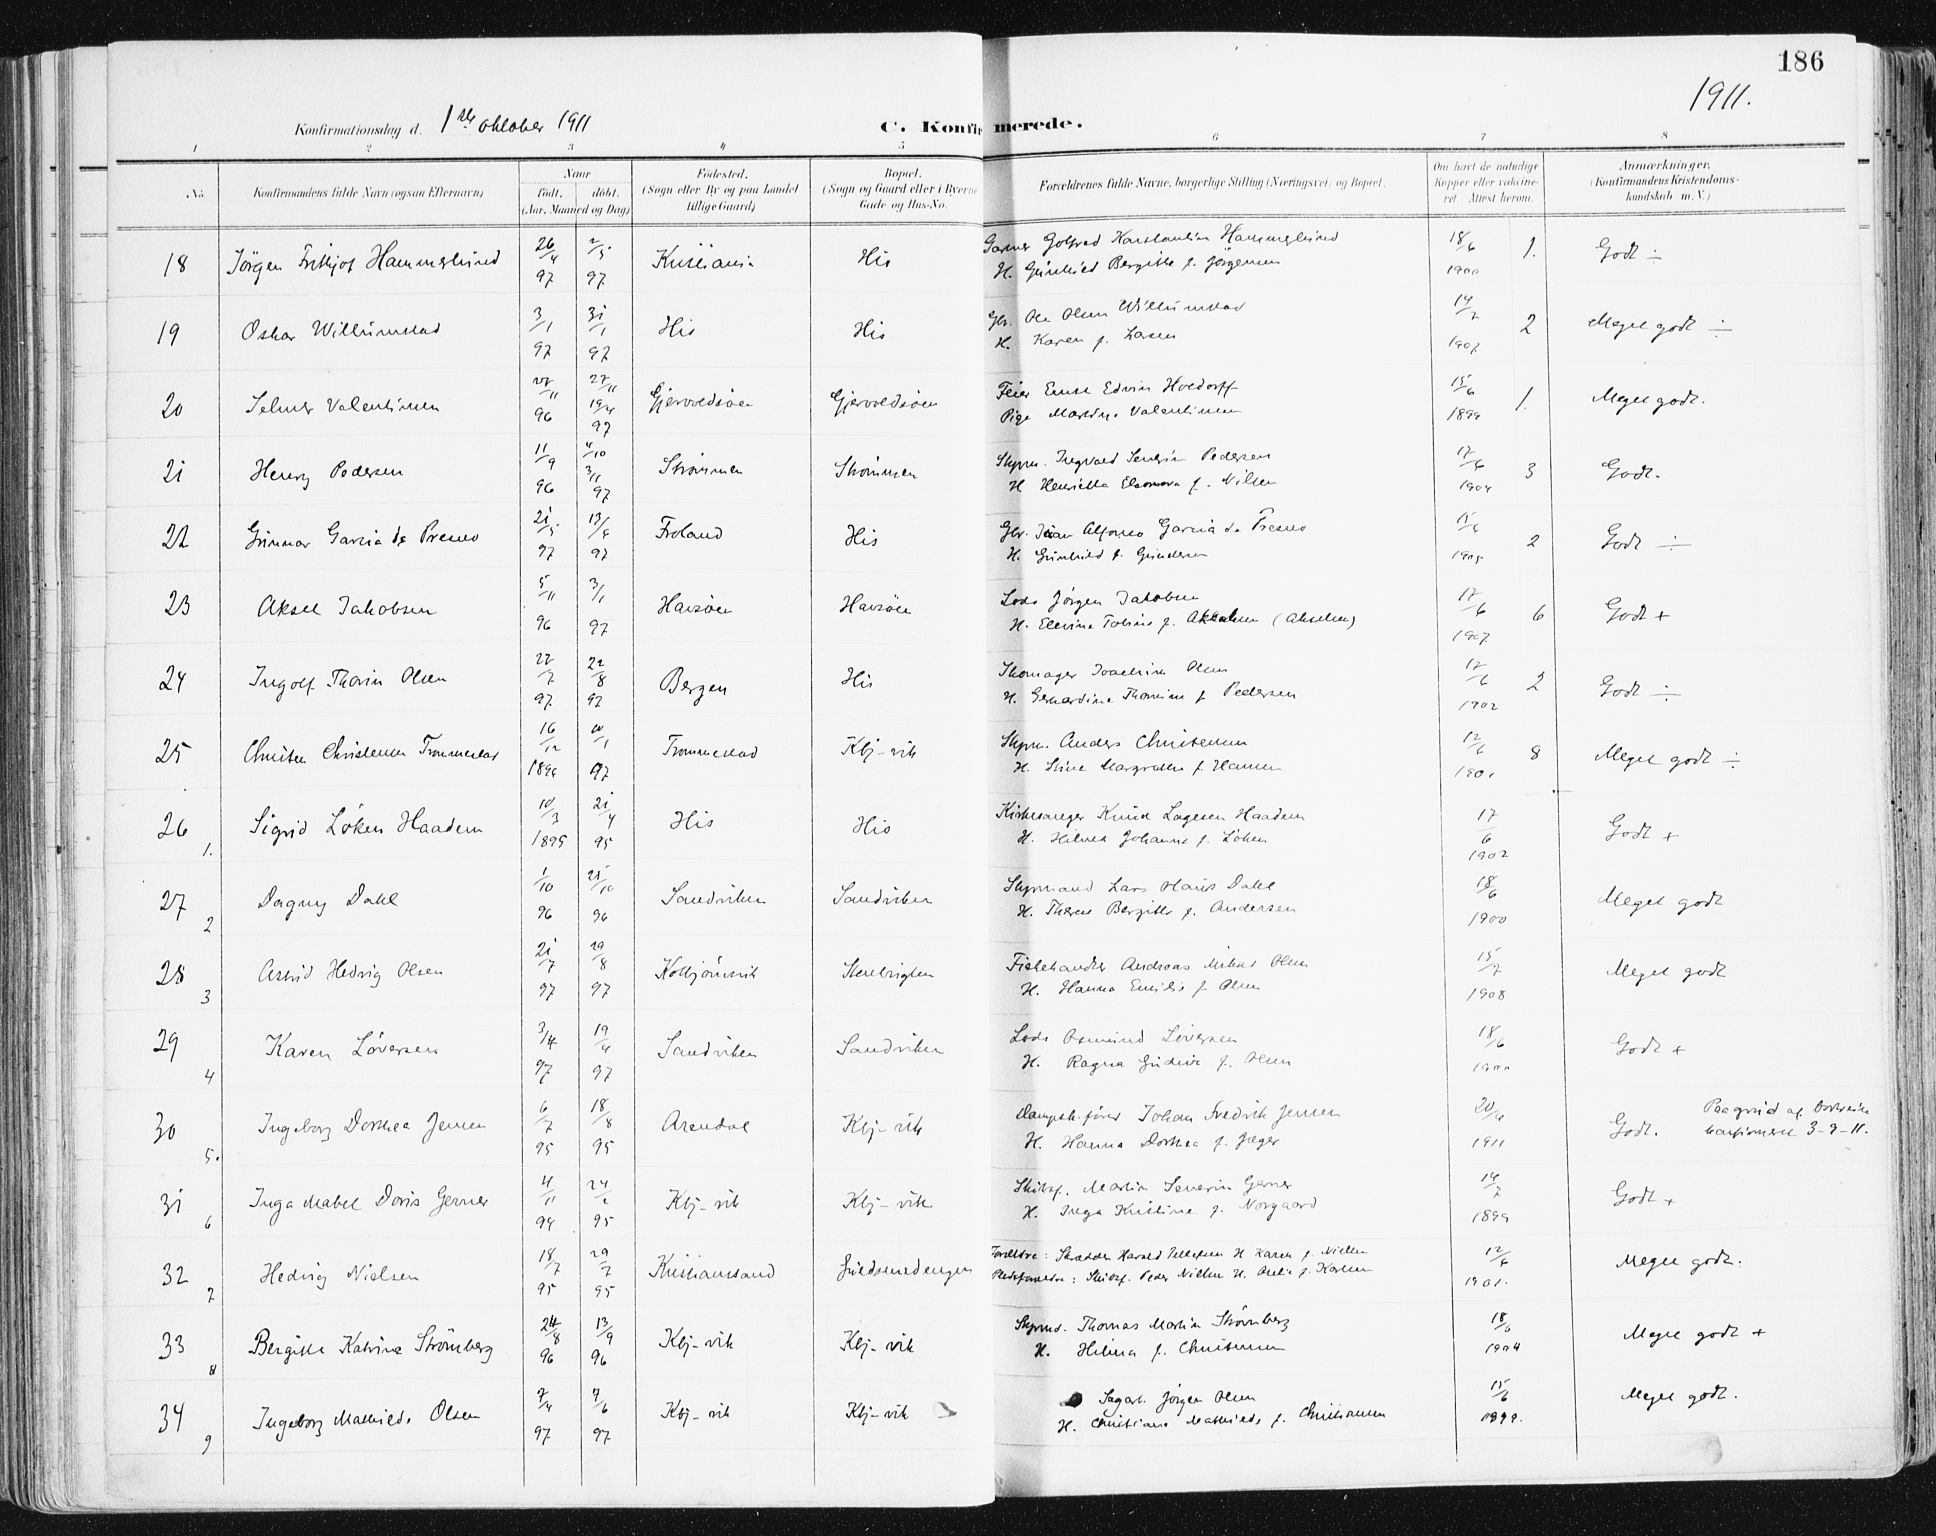 186
1911.
Konfirmationsdag d. 1ste oktober 1911
C. Konfirmerede.
1 2 3 4 5 6 7 8
No. Konfirmandens fulde Navn (ogsaa Efternavn)
Naar
Født. døbt.
(Aar, Maaned og Dag)
Fødested.
(Sogn eller By og paa Landet tillige Gaard)
Bopæl.
(Sogn og Gaard eller i Byerne Gade og Hus-No.
Forældrenes fulde Navne, borgerlige Stilling (Næringsvei) og Bopæl.
Om havt de naturlige Kopper eller vakcineret. Attest herom.
Anmærkninger.
(Konfirmandens Kristendomskundskab m. V.)
18 Jörgen Frithjof Hammerlund 26/4 97 2/5 97 Kristiania His
Garver Golfred Konstantin Hammerlund
H. Gunhild Bergitte f. Jörgensen
18/6 1900 1. Godt ÷
19 Oskar Willumstad 3/1 97 31/1 97 His His
Gbr. Ole Olsen Willumstad
H. Karen f. Larsen
14/7 1907 2 Meget godt ÷
20 Selmer Valentinsen 22/11 96 27/11 19/4 97 Gjervoldsöen Gjervoldsöen
Feier Ernst Edvin Holdorff
Pige Martine Valentinsen
15/6 1899 1. Meget godt.
21 Henry Pedersen 11/9 96 4/10 3/11 97 Strömmen Strömmen
Skprm. Ingvald Severin Pedersen
H Henrikka Eleonora f. Nilsen
17/6 1904 3 Godt.
22 Gunnar Garcia de Presno 21/5 97 13/6 97 Froland His
Gbr. Juan Alfonso Garcia de Presno
H. Gunhild f. Gundersen
15/6 1905 2 Godt ÷
23 Aksel Jakobsen 5/11 96 3/1 97 Havsöen Havsöen
Lods Jörgen Jakobsen
H. Elevine Tobine f. (Akselsen)
17/6 1907 6 Godt +
24 Ingolf Thorin Olsen 22/7 97 22/8 97 Bergen His
Skomager Joachim Olsen
H. Gerhardine Thomine f Pedersen
12/6 1902 2 Godt ÷
25 Christen Christensen Trommestad 16/12 1896 10/1 97 Trommestad Kbj-vik
Skprm. Anders Christensen
H. Stine Margrethe f. Hansen
12/6 1901 8 Meget godt ÷
26 1. Sigrid Löken Haadem 10/3 1895 21/4 95 His His
Kirkesanger Knud Lagesen Haadem
H. Hilma Johanne f. Löken
17/6 1902 Godt +
27 2 Dagny Dahl 1/10 96 25/10 96 Sandviken Sandviken
Skprmand Lars Hans Dahl
H. Therese Bergitte f. Andersen
18/6 1900 Meget godt
28 3 Astrid Hedvig Olsen 21/7 97 29/8 97 Kolbjörnsvik Stenbrygten
Fiskehandler Andreas Mikal Olsen
H. Hanna Emilie f. Olsen
15/7 1908 Meget godt
29 4 Karen Löversen 3/4 97 19/4 97 Sandviken Sandviken
Lods Osmund Löversen
H. Ragna Gudine f. Olsen
18/6 1900 Godt +
30 5. Ingeborg Dorthea Jensen 6/7 95 18/8 95 Arendal Kbj-vik
Dampsk.förer Johan Fredrik Jensen
H. Hanna Dorthea f. Jæger
20/4 1911 Godt. Paagrund af Bortreise konfirmeret 3-9-11.
31 6 Inga Mabel Doris Gerner 4/11 94 24/2 95 Kbj-vik Kbj-vik
Skibsf. Martin Severin Gerner
H. Inga Kristine f. Norgaard
14/7 1899 Godt +
32 7 Hedvig Nielsen 18/7 95 29/7 95 Kristianssand Guldsmedengen
Forældre: Skrædder Harald Tellefsen H Karen f. Nielsen
Pleieforældre: Skibsf. Peder Nielsen H. f. Karlsen
12/6 1901. Meget godt.
33 8 Bergitte Katrine Strömberg 24/8 96 13/9 96 Kbj-vik Kbj-vik
Skprmd. Thomas Martin Strömberg
H. Hilma f. Christensen
18/6 1904 Meget godt +
34 9 Ingeborg Mathilde Olsen 7/4 97 7/6 97 Kbj-vik Kbj-vik
Sagarb. Jörgen Olsen
H. Christiane Mathilde f. Christiansen
15/6 1899. Meget godt.